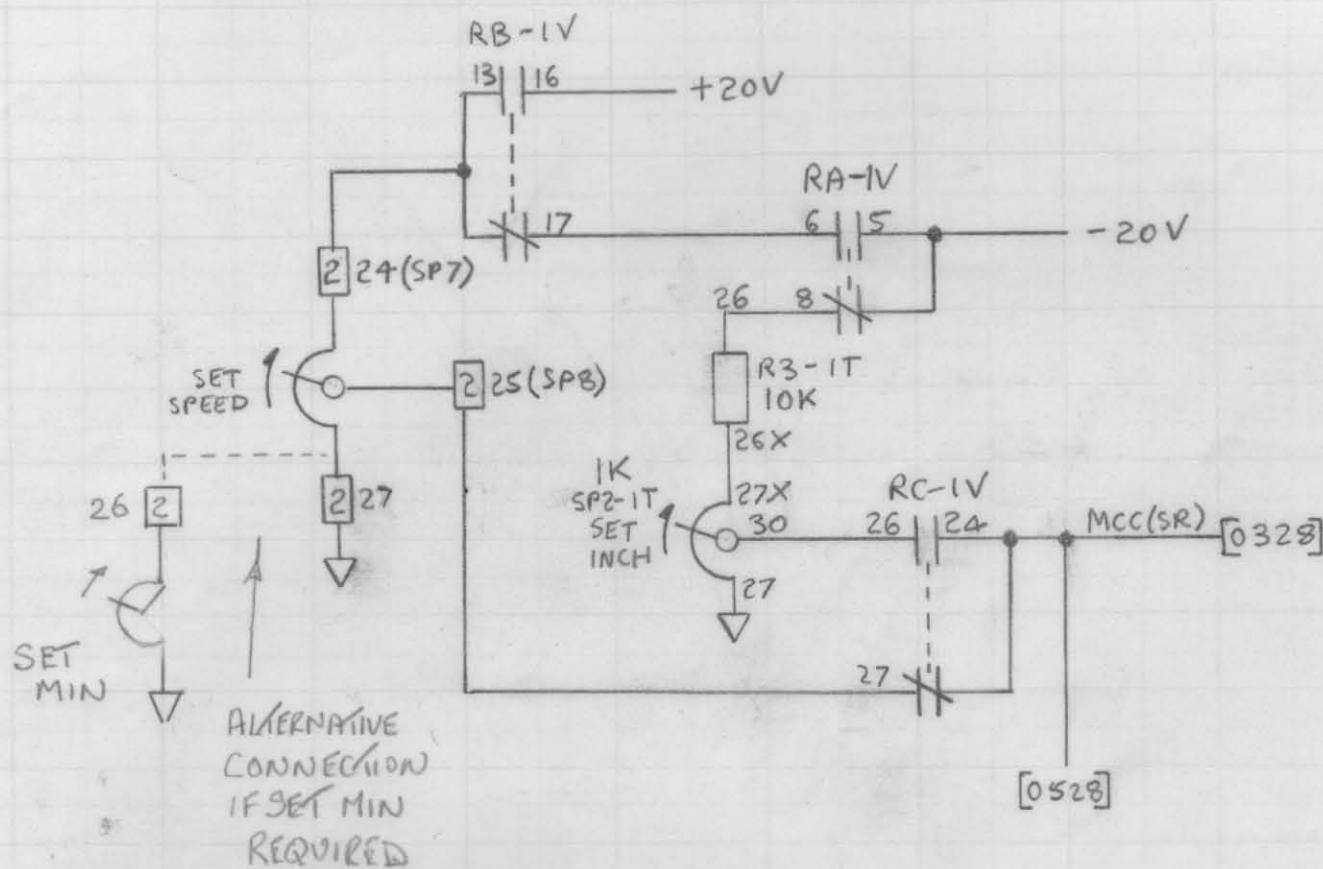 RB-1V
13 16
+20V
17
RA-1V
6 5
-20V
2 24(SP7)
26 8
SET
SPEED
2 25(SP8)
R3-1T
10K
26X
26 2
2 27
1K
SP2-1T
SET
INCH
27X
30
27
RC-1V
26 24
MCC(SR)
[0328]
27
[0528]
SET
MIN
ALTERNATIVE
CONNECTION
IF SET MIN
REQUIRED